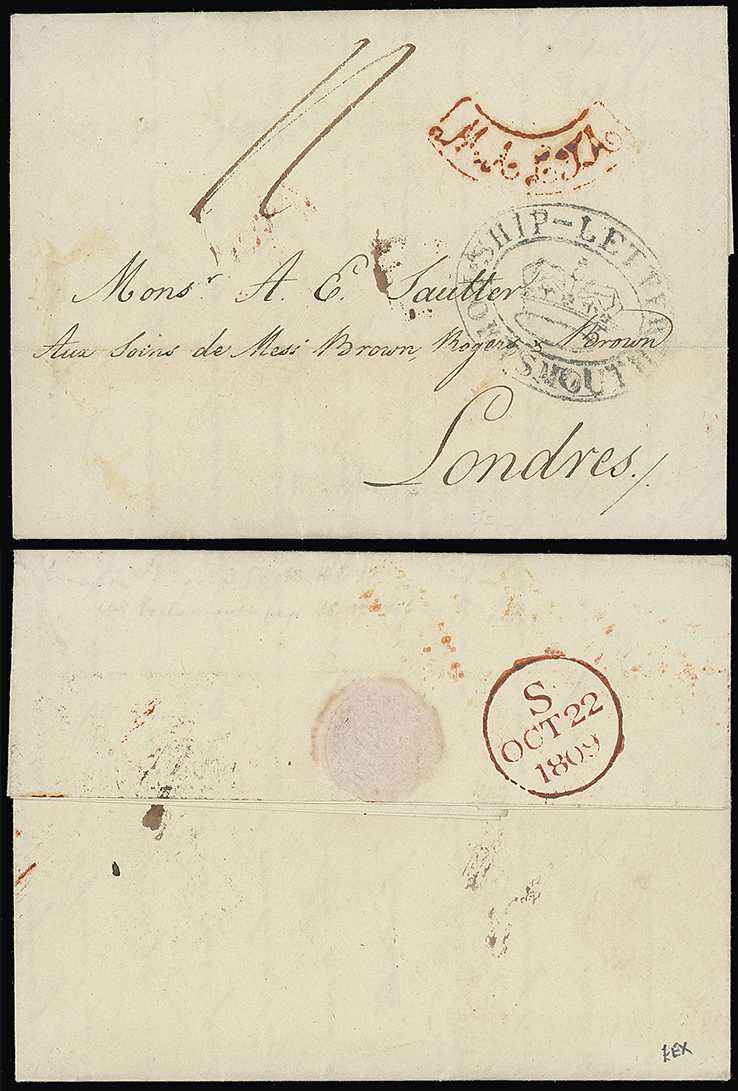 11
MALTA
SHIP-LETTER
PORTSMOUTH
Monsr A. E. Sautter
Aux Soins de Messrs Brown, Rogers & Brown
Londres./.
S
OCT 22
1809